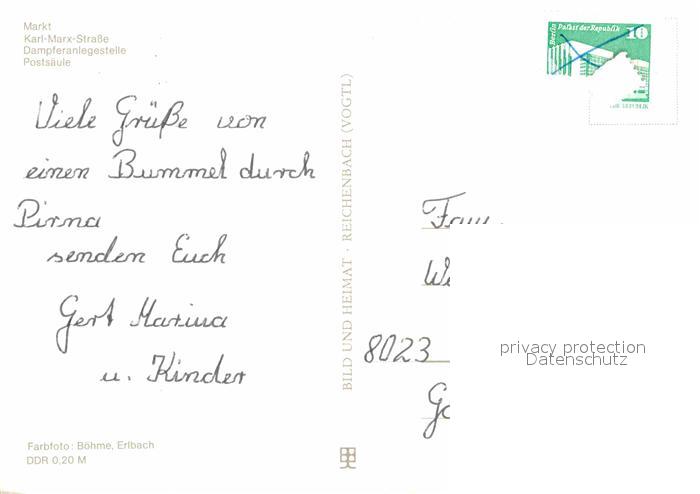 Markt
Karl-Marx-Straße
Dampferanlegestelle
Postsäule
Viele Grüße von
einen Bummel durch
Pirna
senden Euch
Gert Marina
u. Kinder
Farbfoto: Böhme, Erlbach
DDR 0,20 M
BILD UND HEIMAT · REICHENBACH (VOGTL)
Berlin Palast der Republik 10
REPUBLIK
8023
privacy protection
Datenschutz